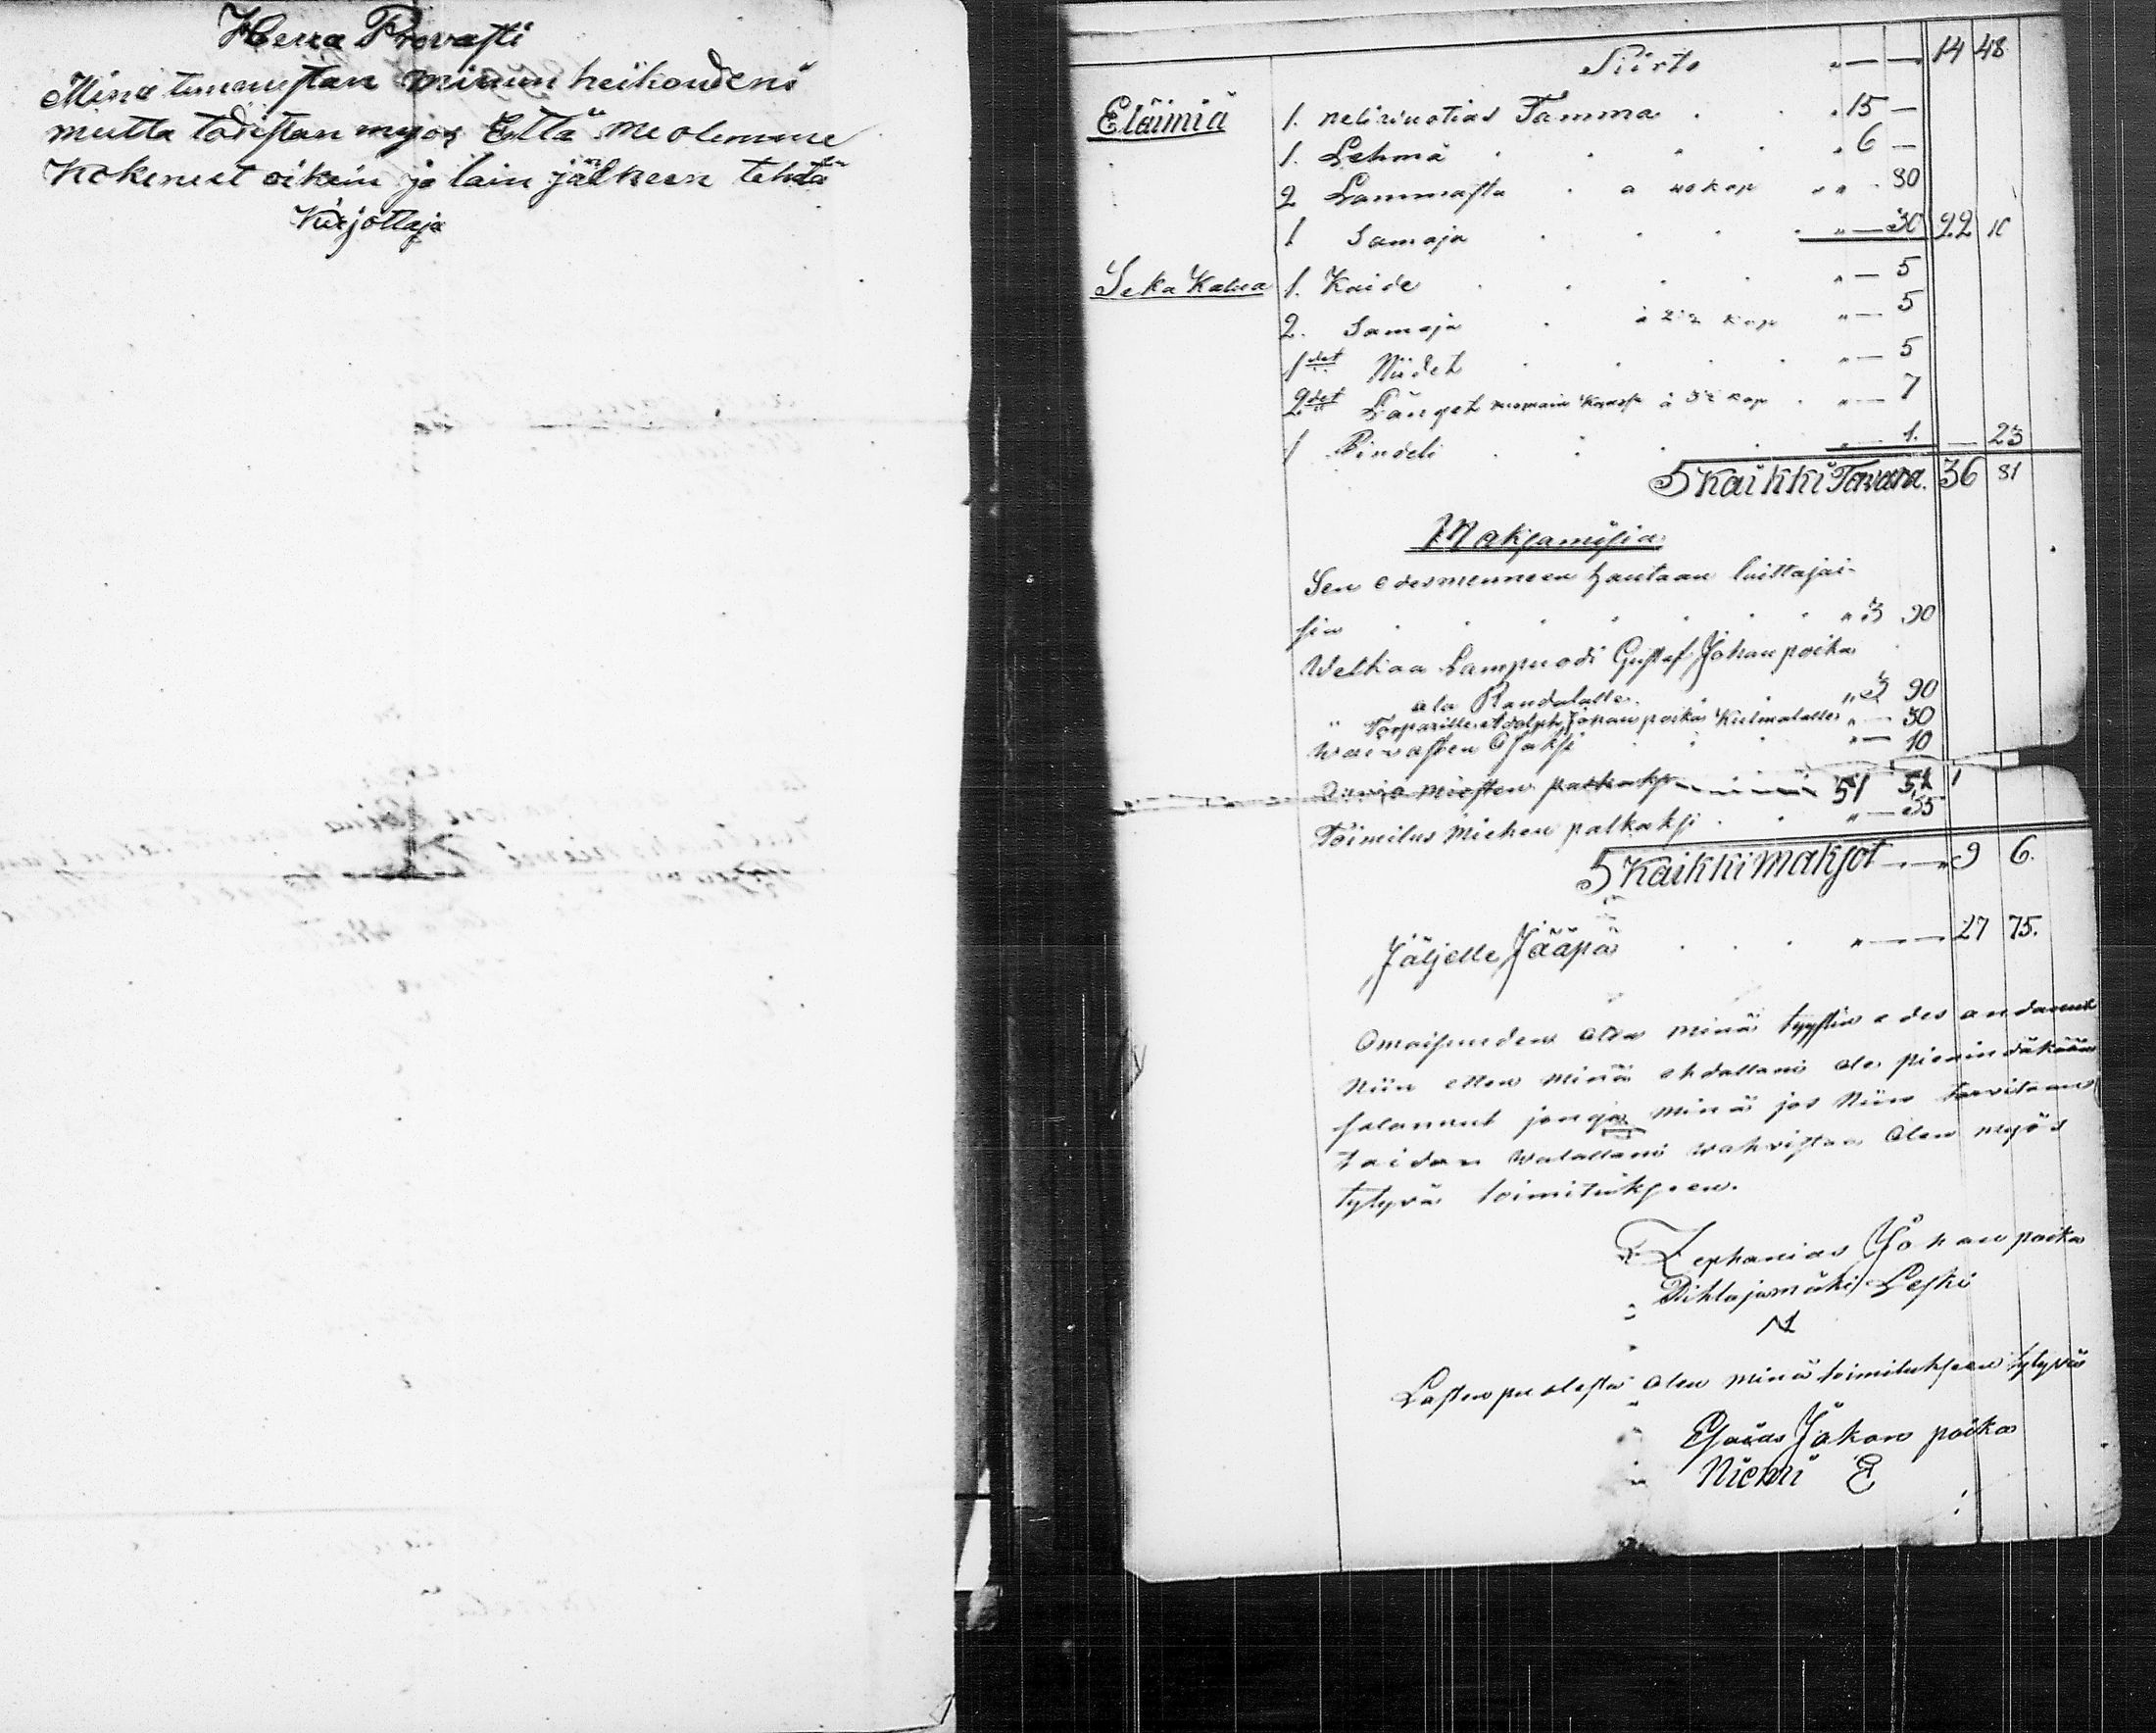 Herra Provasti
Minä tunnustan minun heikoudeni
mutta todistan myös Että me olemme
Kokeneet oikein ja lain jälkeen tehdä
Kirjottaja
Siirto " — — 14 48
Eläimiä 1. neli vuotias Tamma . . . 15 —
1. Lehmä . . . . " 6 —
2 Lammasta . a 40 kop " " . 80
1 Samaja . . . . " — 30 22 10
Seka Kalua 1. Kaide . . . . " — 5
2. Samaja . à 2½ kop " — 5
1 det Niidet . . . . " — 5
2 det Länget à 3½ kop . " — 7
1 Pindeli . . . . " — 1. — 23
S Kaikki Tavara. 36 81
Maksamisia
Sen edesmenneen hautaan laittajai-
siin . . . . . . " 3 90
Welkaa Lampuodi Gustaf Johanpoika
ala Randalalle. . . " 3 90
" Torparille Adolph Johanpoika Kulmalalle " — 30
Waivasten Osaksi . . . " — 10
Arvio miesten palkaksi 51
Toimitus Miehen palkaksi . . " — 35
S Kaikki maksot — " 9 6.
Jäljelle Jääpä . . . " — — 27 75.
Omaisuuden olen minä tyystin edes andanut
Niin etten minä ehdallani ole pienindäkään
salannut jonga minä jos Niin tarvitaan
taidan walallani wahvistaa Olen myös
tytyvä toimitukseen.
Zephanias Johanpoika
Pihlajamäki Leski
Lasten puolesta olen minä toimitukseen tytyväs
Esaias Johan poika
Niemi E